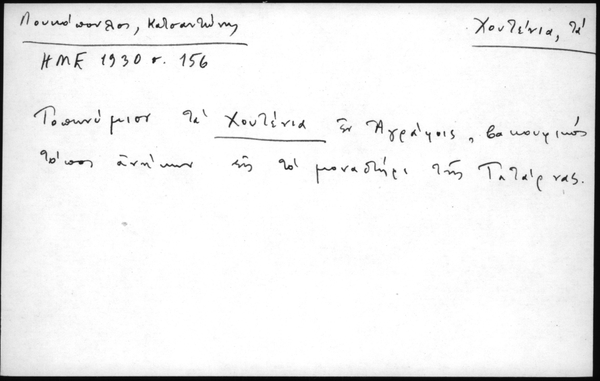 Λουκόπουλος, Κατσαντώνης
Χουτένια, τά
ΗΜΕ 1930 σ. 156
Τοπωνύμιον τά Χουτένια ἐν Ἀγράφοις, βακουφικός
τόπος ἀνήκων εἰς τό μοναστήρι τῆς Τατάρνας.